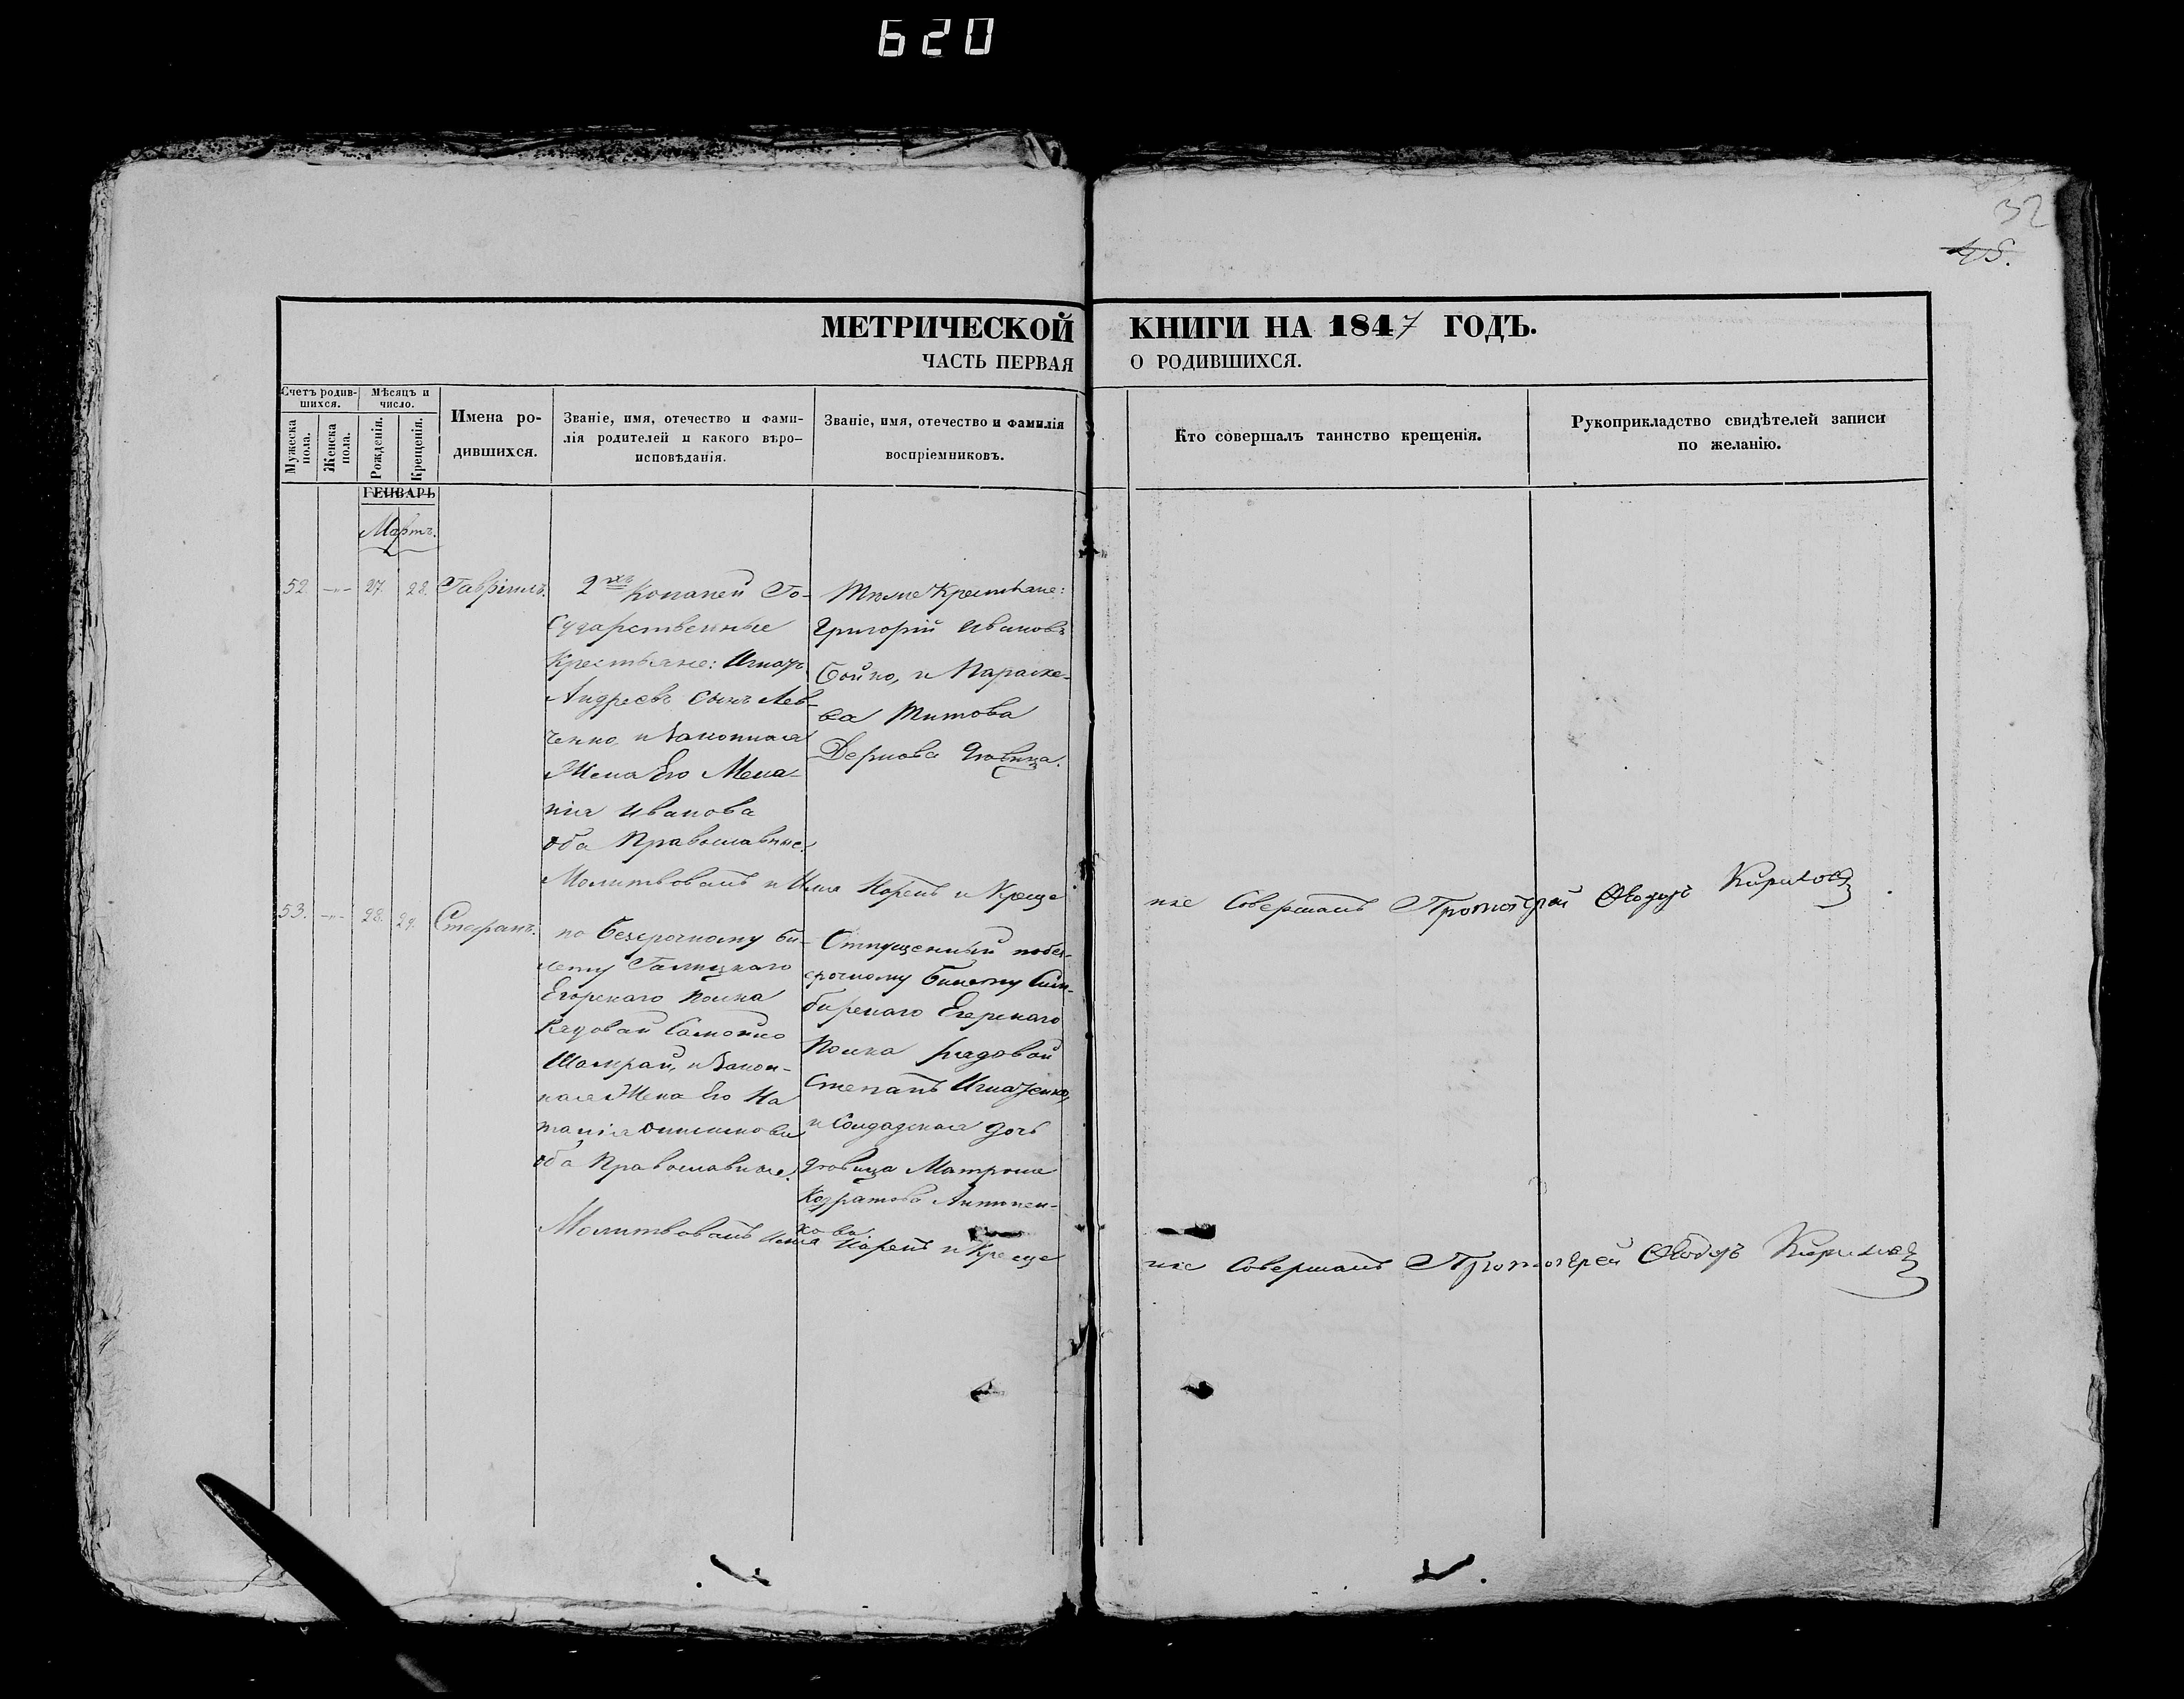 620
32
45.
МЕТРИЧЕСКОЙ КНИГИ НА 1847 ГОДЪ.
ЧАСТЬ ПЕРВАЯ О РОДИВШИХСЯ.
Счетъ родив-
шихся.
Мужеска
пола.
Женска
пола.
Мѣсяцъ и
число.
Рожденія.
Крещенія.
Имена ро-
дившихся.
Званіе, имя, отечество и фами-
лія родителей и какого вѣро-
исповѣданія.
Званіе, имя, отечество и фамилія
воспріемниковъ.
Кто совершалъ таинство крещенія.
Рукоприкладство свидѣтелей записи
по желанію.
ГЕНВАРЬ
Мартъ.
52. -"- 27. 28. Гавріилъ.
2хъ Копаней Го-
сударственные
Крестьяне: Игнатъ
Андреевъ сынъ Лев-
ченко, и Законная
Жена Его Мела-
нія Иванова
оба Православные.
Тѣже Крестьяне:
Григорій Ивановъ
Бойко, и Параске-
ва Титова
Дернова Вдовица.
Молитвовалъ и Имя Нарекъ и Креще
ніе Совершалъ Протоіерей Ѳеодоръ Кириловъ
53. -"- 28. 29. Стефанъ.
по безсрочному би-
лету Галицкаго
Егорскаго полка
Рядовой Самойло
Шамрай, и Закон-
ная Жена Его На
талія
оба Православные.
Отпущенный побез-
срочному билету Сим-
бирскаго Егерскаго
Полка рядовой
Степанъ Игнатенко,
и Солдатская дочь
дѣвица Матрона
Кодратова Антонен-
кова.
Молитвовалъ Имя Нарекъ и Креще
ніе Совершалъ Протоіерей Ѳеодоръ Кириловъ